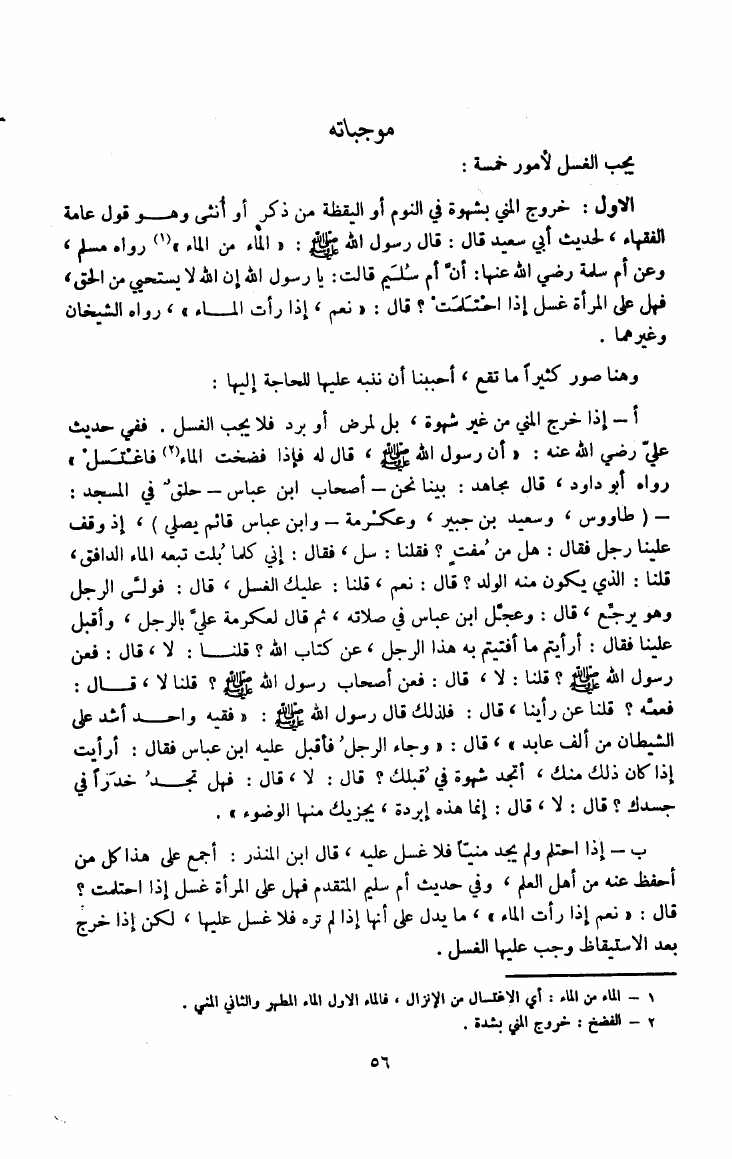 موجباته
يجب الغسل لأمور خمسة :
الاول : خروج المني بشهوة في النوم أو اليقظة من ذكرٍ أو أنثى وهــو قول عامة
الفقهاء ، لحديث أبي سعيد قال : قال رسول الله ﷺ : « الماء من الماء »(١) رواه مسلم ،
وعن أم سلمة رضي الله عنها: أنَّ أم سُلَيم قالت: يا رسول الله إن الله لا يستحيي من الحق،
فهل على المرأة غسل إذا احْتَلَمَتْ ؟ قال : « نعم ، إذا رأت المــاء » ، رواه الشيخان
وغيرهما .
وهنا صور كثيراً ما تقع ، أحببنا أن ننبه عليها للحاجة إليها :
أ – إذا خرج المني من غير شهوة ، بل لمرض أو برد فلا يجب الغسل . ففي حديث
عليّ رضي الله عنه : « أن رسول الله ﷺ ، قال له فإذا فضخت الماء(٢) فاغْتَسلْ »
رواه أبو داود ، قال مجاهد : بينا نحن – أصحاب ابن عباس – حلقٌ في المسجد :
– ( طاووس ، وسعيد بن جبير ، وعكرمة – وابن عباس قائم يصلي ) ، إذ وقف
علينا رجل فقال : هل من مُفتٍ ؟ فقلنا : سل ، فقال : إني كلما بُلت تبعه الماء الدافق،
قلنا : الذي يكون منه الولد ؟ قال : نعم ، قلنا : عليك الغسل ، قال : فولَّى الرجل
وهو يرجِّع ، قال : وعجَّل ابن عباس في صلاته ، ثم قال لعكرمة عليَّ بالرجل ، وأقبل
علينا فقال : أرأيتم ما أفتيتم به هذا الرجل ، عن كتاب الله ؟ قلنــا : لا ، قال : فعن
رسول الله ﷺ ؟ قلنا : لا ، قال : فعن أصحاب رسول الله ﷺ ؟ قلنا لا ، قــال :
فعمَّه ؟ قلنا عن رأينا ، قال : فلذلك قال رسول الله ﷺ : « فقيه واحــد أشد على
الشيطان من ألف عابد » ، قال : « وجاء الرجلُ فأقبل عليه ابن عباس فقال : أرأيت
إذا كان ذلك منك ، أتجد شهوة في قبلك ؟ قال : لا ، قال : فهل تجــدُ خدَراً في
جسدك ؟ قال : لا ، قال : إنما هذه إبردة ، يجزيك منها الوضوء » .
ب – إذا احتلم ولم يجد منيّاً فلا غسل عليه ، قال ابن المنذر : أجمع على هذا كل من
أحفظ عنه من أهل العلم ، وفي حديث أم سليم المتقدم فهل على المرأة غسل إذا احتلمت ؟
قال : « نعم إذا رأت الماء » ، ما يدل على أنها إذا لم تره فلا غسل عليها ، لكن إذا خرج
بعد الاستيقاظ وجب عليها الغسل .
١ – الماء من الماء : أي الاغتسال من الإنزال ، فالماء الاول الماء المطهر والثاني المني .
٢ – الفضخ : خروج المني بشدة .
٥٦